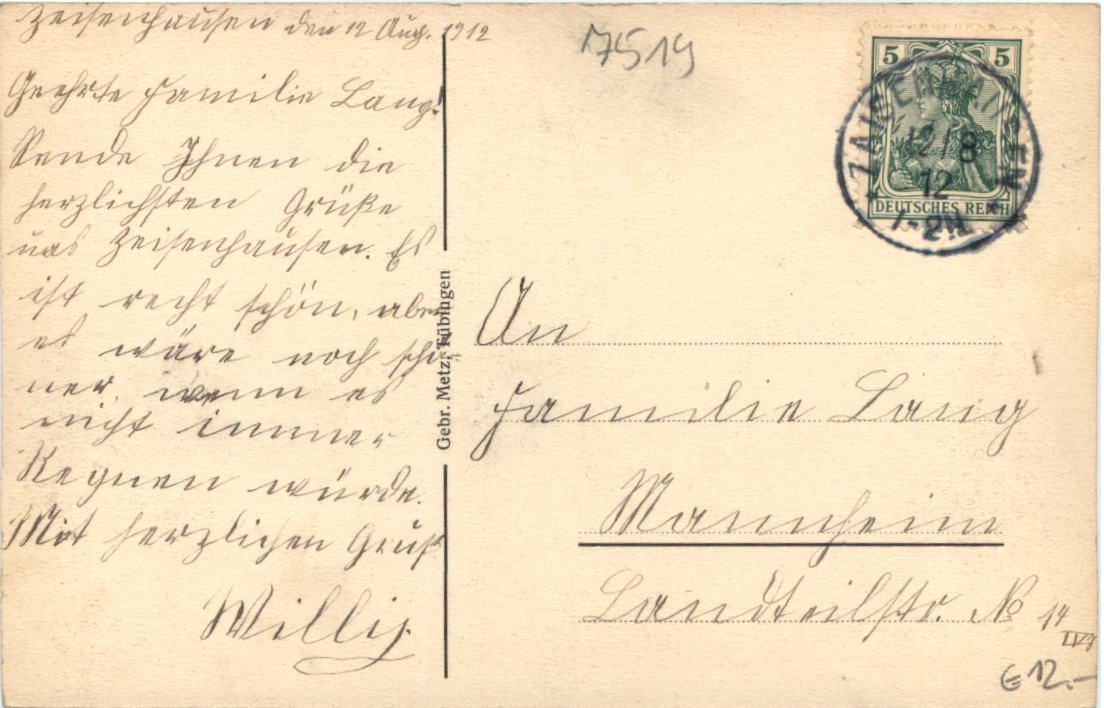 Zeisenhausen den 12 Aug. 1912
Geehrte Familie Lang!
Sende Ihnen die
herzlichsten Grüße
aus Zeisenhausen. Es
ist recht schön, aber
es wäre noch schö
ner, wenn es
nicht immer
Regnen würde.
Mit herzlichen Gruß
Willy.
Gebr. Metz, Tübingen
17519
5 5
DEUTSCHES REICH
ZAISENHAUSEN
12/8
12
1-2N.
An
Familie Lang
Mannheim
Landteilstr. No 14
€ 12.-